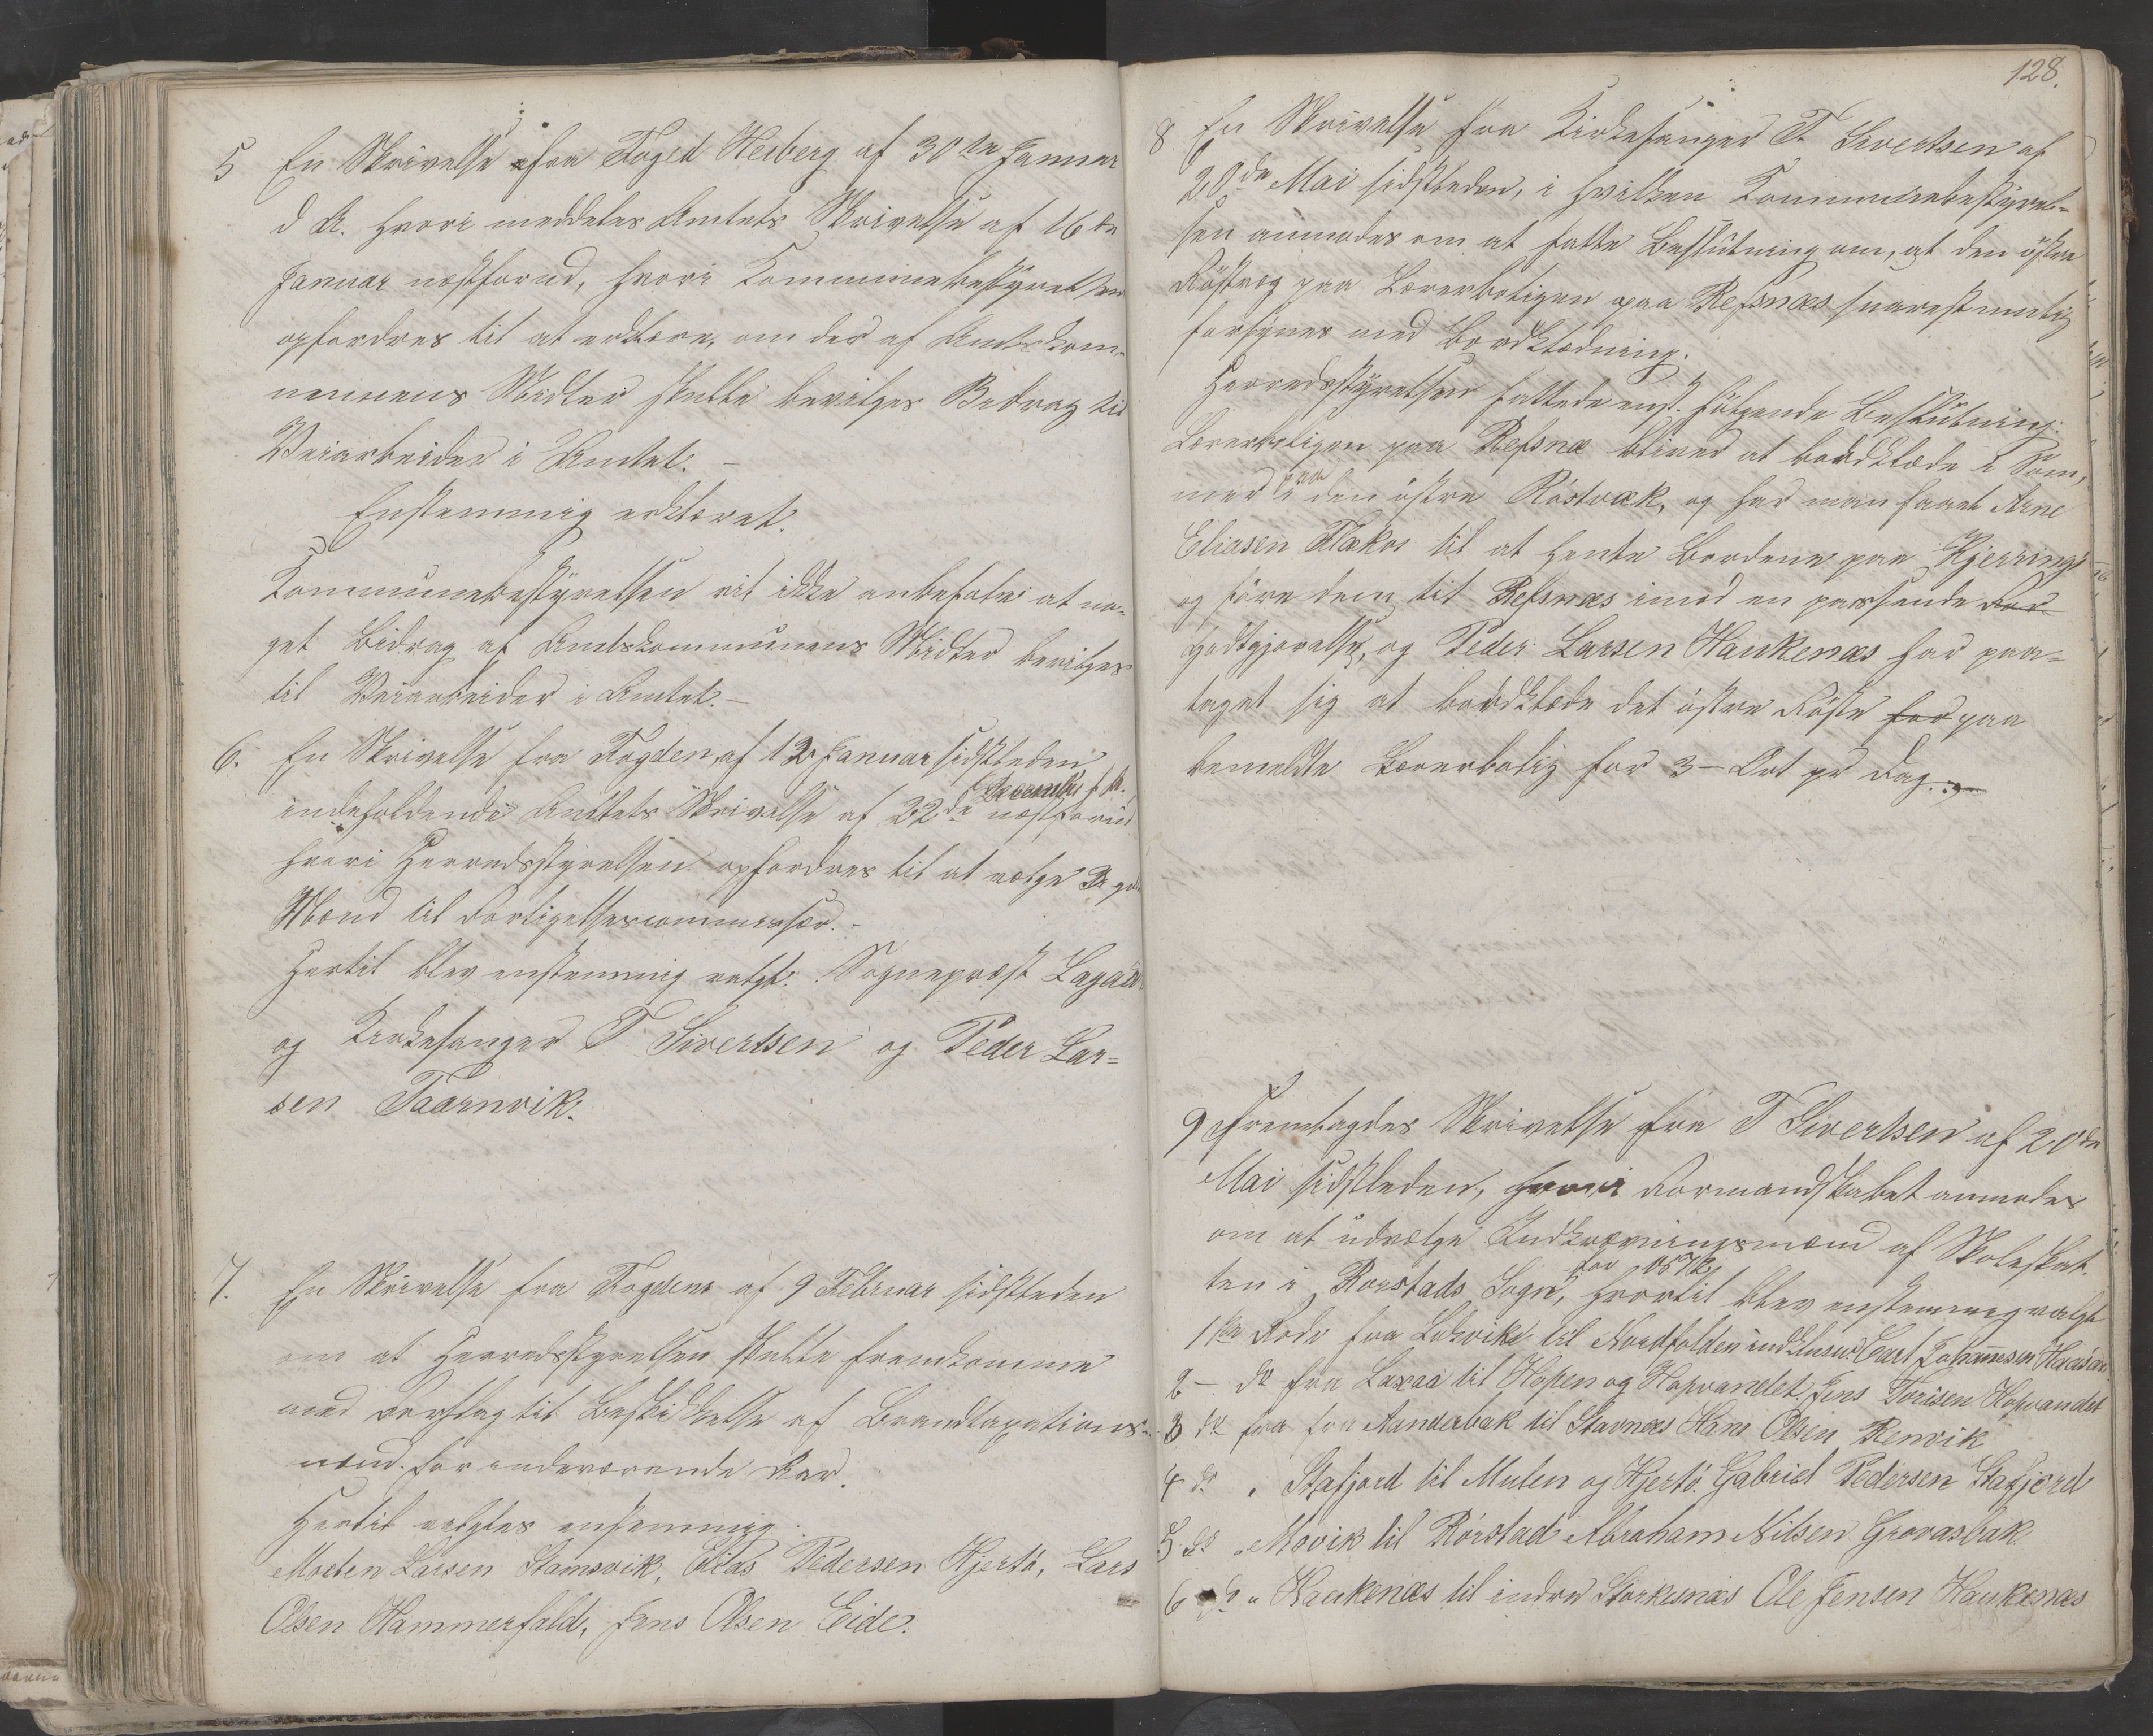 5 En Skrivelse fra Foged Heiberg af 30te Januar
d A. hvori meddeles Amtets Skrivelse af 16de
Januar næstforud, hvori Kommunebestyrelsen
opfordres til at erklære, om der af Amtskom-
munens Midler skulle bevilges Bidrag til
Veiarbeider i Amtet. -
Enstemmig erklæret.
Kommunebestyrelsen vil ikke anbefale at no-
get Bidrag af Amtskommunens Midler bevilges
til Veiarbeider i Amtet. -
6. En Skrivelse fra Fogden af 12 Januar sidstleden
indeholdende Amtets Skrivelse af 22de December f. A. næstforud
hvori Herredsstyrelsen opfordres til at vælge
Mænd til Forligelsescommissær. -
Hertil blev enstemmig valgt: Sognepræst Lagaard
og Kirkesanger T. Sivertsen og Peder Lar=
sen Taarnvik.
7. En Skrivelse fra Fogden af 9 Februar sidstleden
om at Herredsstyrelsen skulle fremkomme
med Forslag til Beskikkelse af Brandtaxations-
mænd for indeværende Aar.
Hertil valgtes enstemmig:
Morten Larsen Stamsvik, Elias Pedersen Hjertö, Lars
Olsen Hammerfald, Jens Olsen Eide.
128.
8 En Skrivelse fra Kirkesanger T. Sivertsen af
20de Mai sidstleden, i hvilken Kommunebestyrel=
sen anmodes om at fatte Beslutning om, at den östre
Röstvæg paa Lærerboligen paa Refsnæs snarest muelig
forsynes med Bordklædning.
Herredsstyrelsen fattede enst. fölgende Beslutning:
Lærerboligen paa Refsnæ bliver at bordklæde i Som,
mer i paa den östre Röstvæk, og har man faaet Arne
Eliasen Flakos til at hente Bordene paa Kjerringö
og före dem til Refsnæs imod en passende For
Godtgjörelse, og Peder Larsen Haukenæs har paa=
taget sig at bordklæde det östre Röste for paa
bemeldte Lærerbolig for 3 - Ort pr Dag.
9 Fremlagdes Skrivelse fra T Sivertsen af 20de
Mai sidstleden, hvori Formandskabet anmodes
om at udvælge Indkrævningsmænd af Skoleskat-
ten i Rorstads Sogn for 1857/8, hvortil blev enstemmig valgt
1ste Rode fra Lekvik til Nordfolden indklusiv. Carl Johannesen
2 - do fra Laxaa til Hopen og Hopvandet. Jens Torisen Hopvandet
3 do fra fra Aanderbak til Stavnæs Hans Olsen Renvik
4 do " Stafjord til Mulen og Hjertö. Gabriel Pedersen Stafjord
5 do " Movik til Rörstad Abraham Nilsen Grovasbak
6 do " Haukenæs til indre Storkesnæs Ole Jensen Haukenæs